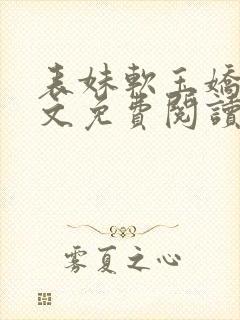 表妹軟玉嬌
文免費閱讀
霧夏之心